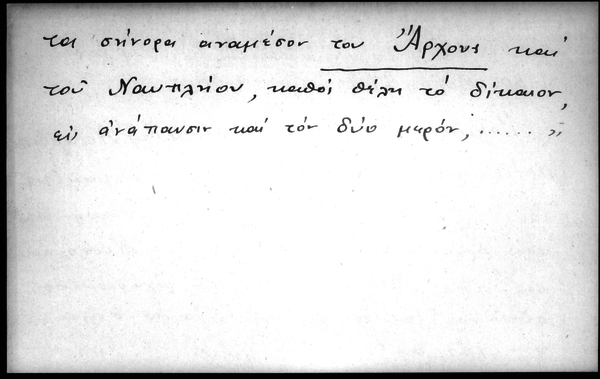 τα σήνορα αναμέσον του Ἄρχους καί
τοῦ Ναυπλήου, καθώ θέλη τό δίκαιον,
εἰς ἀνάπαυσιν καί τόν δύο μερόν, ...... "